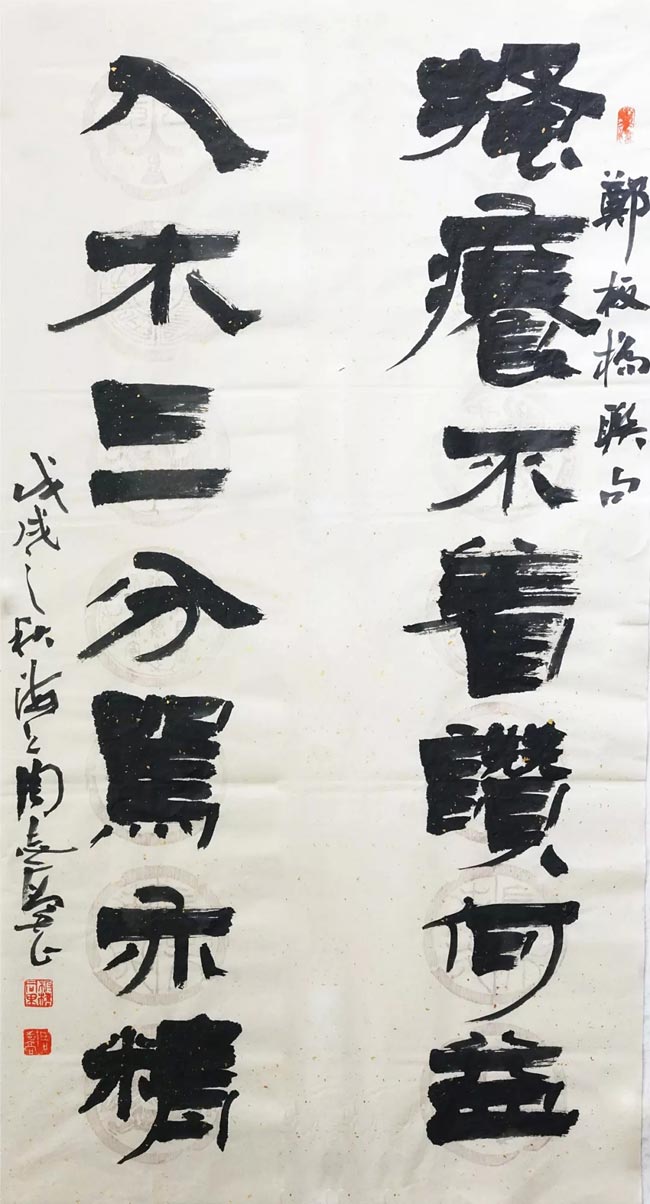 鄭板橋聯句
搔癢不着讚何益
入木三分罵亦精
戊戌之秋海上周志高